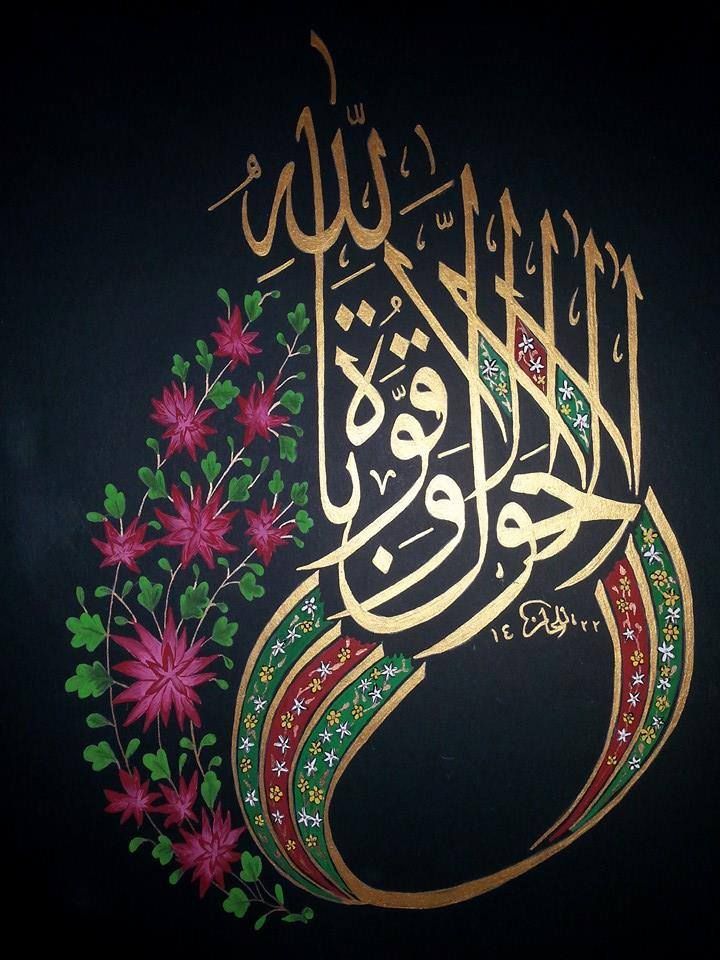 لا حول ولا قوة إلا بالله
١٤ ٢٢